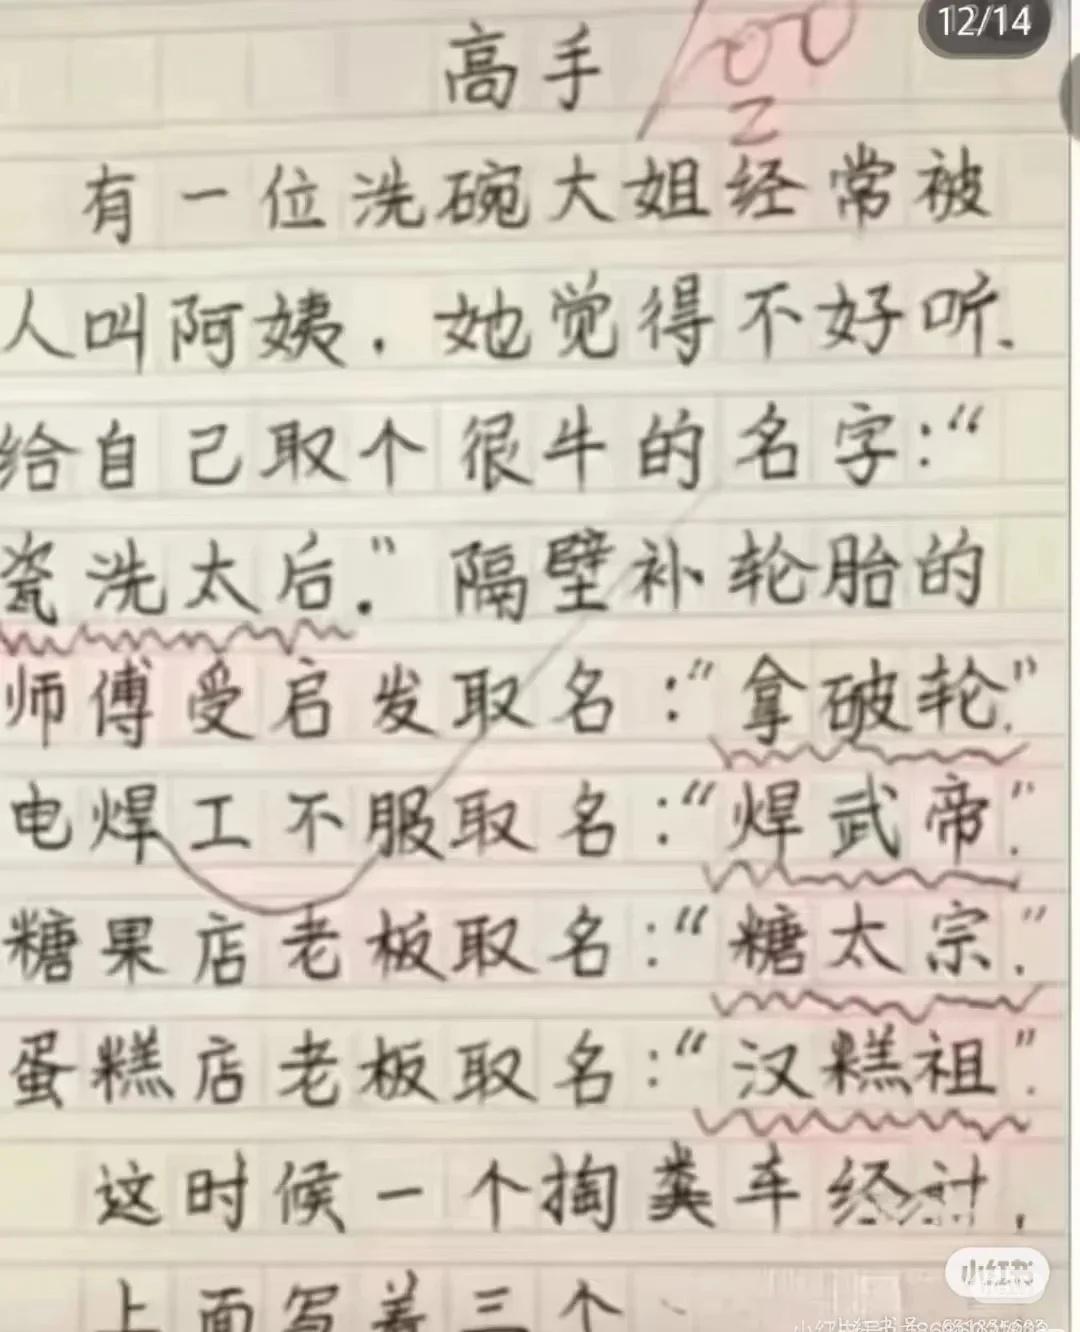 12/14
高手
100
有一位洗碗大姐经常被
人叫阿姨.她觉得不好听、
给自己取个很牛的名字:“
瓷洗太后.”隔壁补轮胎的
师傅受启发取名:“拿破轮.”
电焊工不服取名:“焊武帝”.
糖果店老板取名:“糖太宗.”
蛋糕店老板取名:“汉糕祖”.
这时候一个掏粪车经过,
上面写着三个
小红书